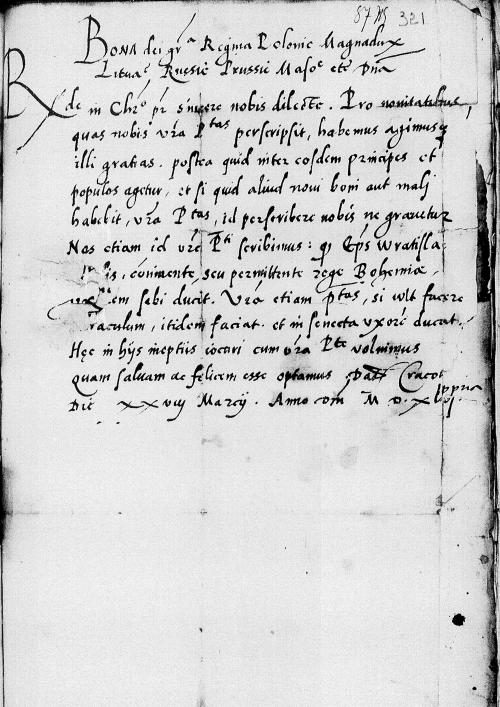 321
BONA dei grᵃ Regina Polonie Magnadux
Lituaᵉ Russie Prussie Masoᵉ etc Dnā
Rde in Chrᵒ pr sincere nobis dilecte. Pro nouitatibus,
quas nobis vrā Pᵗᵃˢ perscripsit, habemus agimusq
illi gratias. postea quid inter eosdem principes et
populos agetur, et si quid aliud noui boni aut malj
habebit, vrā Pᵗᵃˢ, id perscribere nobis ne grauetur
Nos etiam id vrē Pᵗⁱ scribimus: qͥ Eps Wratisla
uis, coniuente, seu permittente rege Bohemiæ,
uxorem sibi ducit. Vrā etiam pᵗᵃˢ, si vult facere
raculum, itidem faciat. et in senecta vxorē ducat.
Hęc in hijs ineptiis iocari cum vra Pᵗᵉ voluimus
quam saluam ac felicem esse optamus. Datt Cracoᵉ
Die xxvij Marcij. Anno Dnj M D.